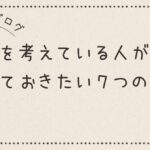 ブログ
を考えている人が
ておきたい7つの